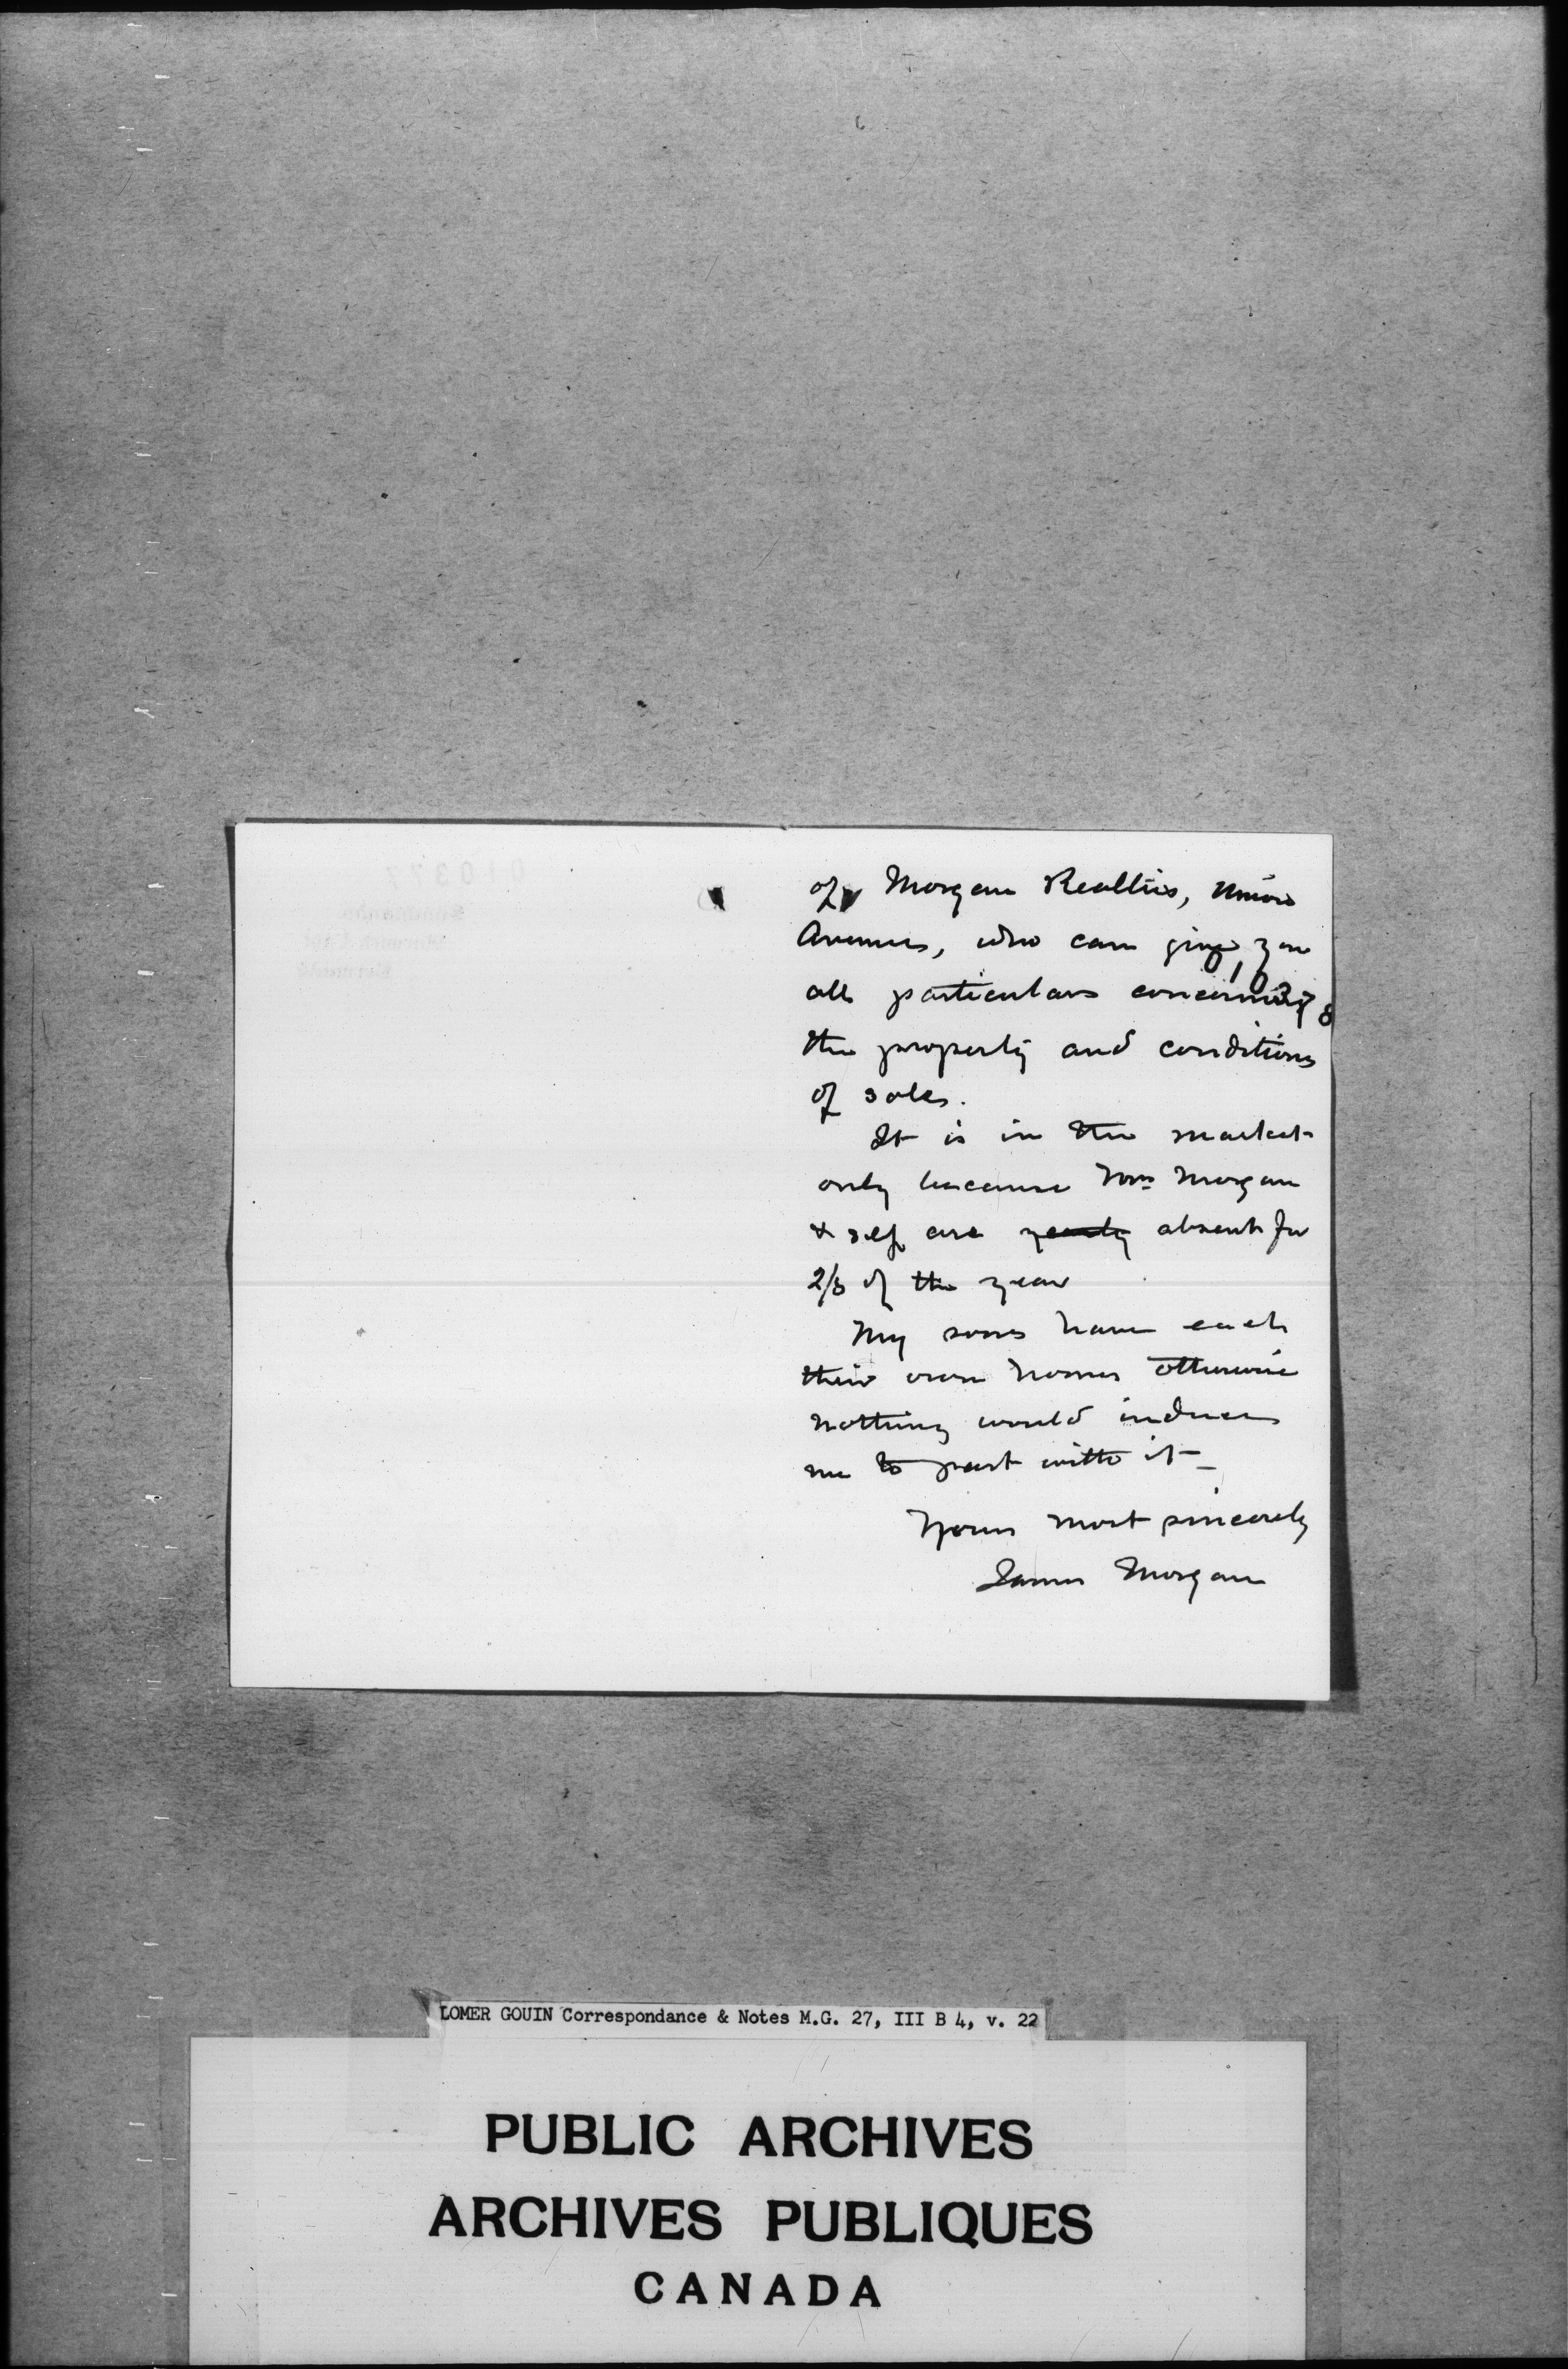 of Morgan Realties, Union
Avenue, who can give you
010378
all particulars concerning
the property and conditions
of sale.
It is in the market
only because Mrs Morgan
& self are yearly absent for
2/3 of the year
My sons have each
their own homes otherwise
nothing would induce
me to part with it –
Yours most sincerely
James Morgan
LOMER GOUIN Correspondance & Notes M.G. 27, III B 4, v. 22
PUBLIC ARCHIVES
ARCHIVES PUBLIQUES
CANADA